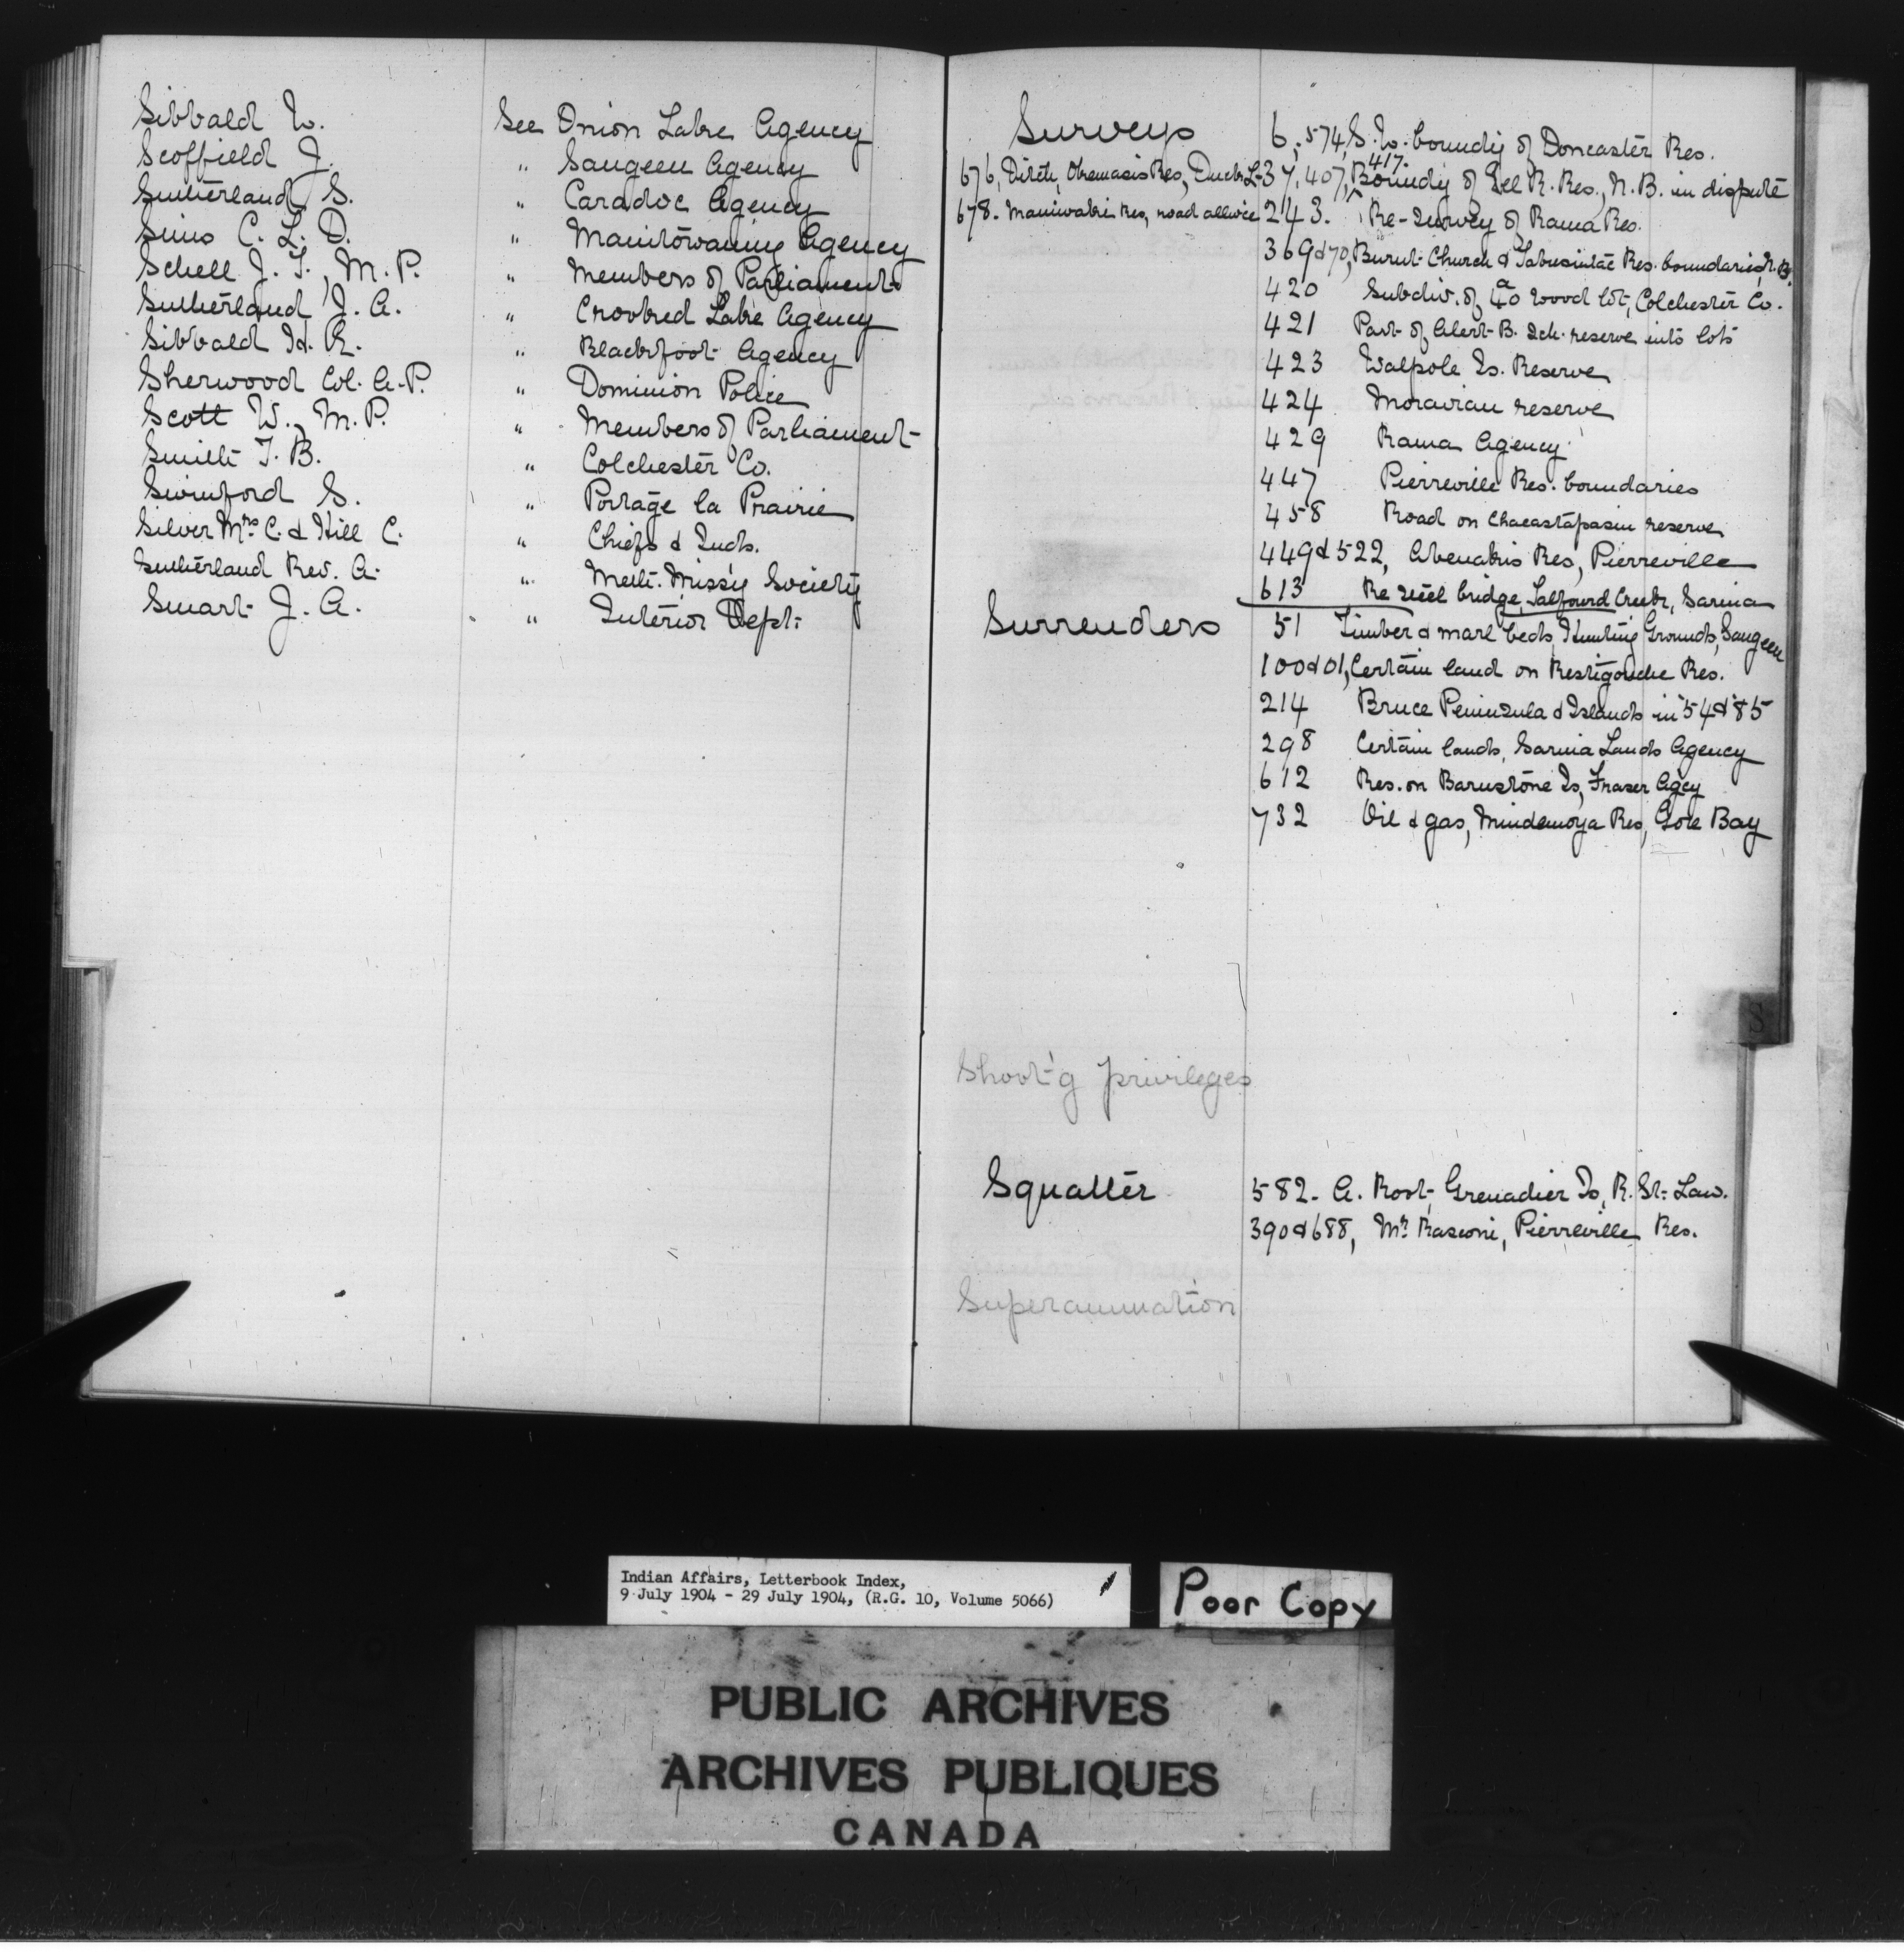 Sibbald W. See Onion Lake Agency
Scoffield J. " Saugeen Agency
Sutherland S. " Caradoc Agency
Sims C. L. D. " Manitowaning Agency
Schell J. T., M. P. " Members of Parliament
Sutherland J. A. " Crooked Lake Agency
Sibbald H. R. " Blackfoot Agency
Sherwood Col. A. P. " Dominion Police
Scott W., M. P. " Members of Parliament
Smith T. B. " Colchester Co.
Swinford S. " Portage la Prairie
Silver Mrs C. & Hill C. " Chiefs & Inds.
Sutherland Rev. A. " Meth. Miss'y Society
Smart J. A. " Interior Dept.
Surveys 6, 574, S. W. boundy of Doncaster Res.
676, Ditch, Res, Duck L- 37, 407, 417. Boundy of Eel R. Res., N. B. in dispute
678. Maniwaki Res, road allwce 243. Re-survey of Rama Res.
369 & 70, Burnt Church & Tabusintac Res. boundaries, N. B.
420 Subdiv. of 40 a wood lot, Colchester Co.
421 Part of Alert B. Sch. reserve into lots
423 Walpole Is. Reserve
424 Moravian reserve
429 Rama Agency
447 Pierreville Res. boundaries
458 Road on Chacastapasin reserve
449 & 522, Abenakis Res, Pierreville
613 Re steel bridge, Talfourd Creek, Sarnia
Surrenders 51 Timber & marl beds, Hunting Grounds, Saugeen
100 & 01, Certain land on Restigouche Res.
214 Bruce Peninsula & Islands in '54 & '85
298 Certain lands, Sarnia Lands Agency
612 Res. on Barnstone Is, Fraser Agcy
732 Oil & gas, Mindemoya Res, Gore Bay
Shoot'g privileges
Squatter 582. A. Root, Grenadier Is, R. St. Law.
390 & 688, Mr. Rasconi, Pierreville Res.
Superannuation
S
Indian Affairs, Letterbook Index,
9 July 1904 - 29 July 1904, (R.G. 10, Volume 5066)
Poor Copy
PUBLIC ARCHIVES
ARCHIVES PUBLIQUES
CANADA